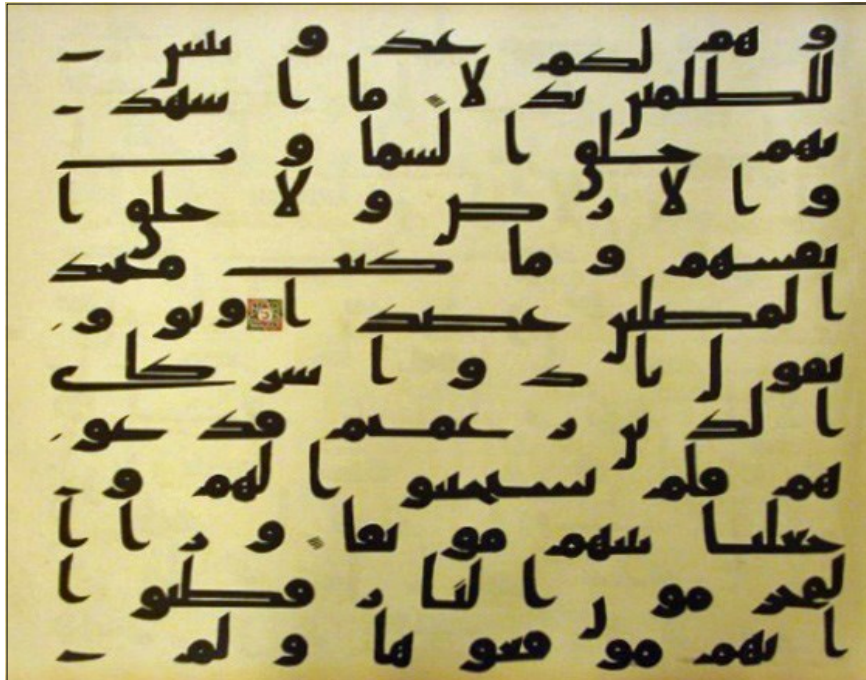 و هم لكم عدو بس
للظلمين بدلا ما ا شهد
تهم خلق ا لسمو ت
و ا لا ر ض و لا خلق ا
نفسهم و ما كنت متخذ
ا لمضلين عضدا و يو م
يقو ل نا د و ا شر كا ى
ا لذ ين ز عمتم فد عو
هم فلم يستجيبو ا لهم و
جعلنا بينهم مو بقا و ر ا ا
لمجر مو ن ا لنا ر فظنو ا
ا نهم مو قعو ها و لم